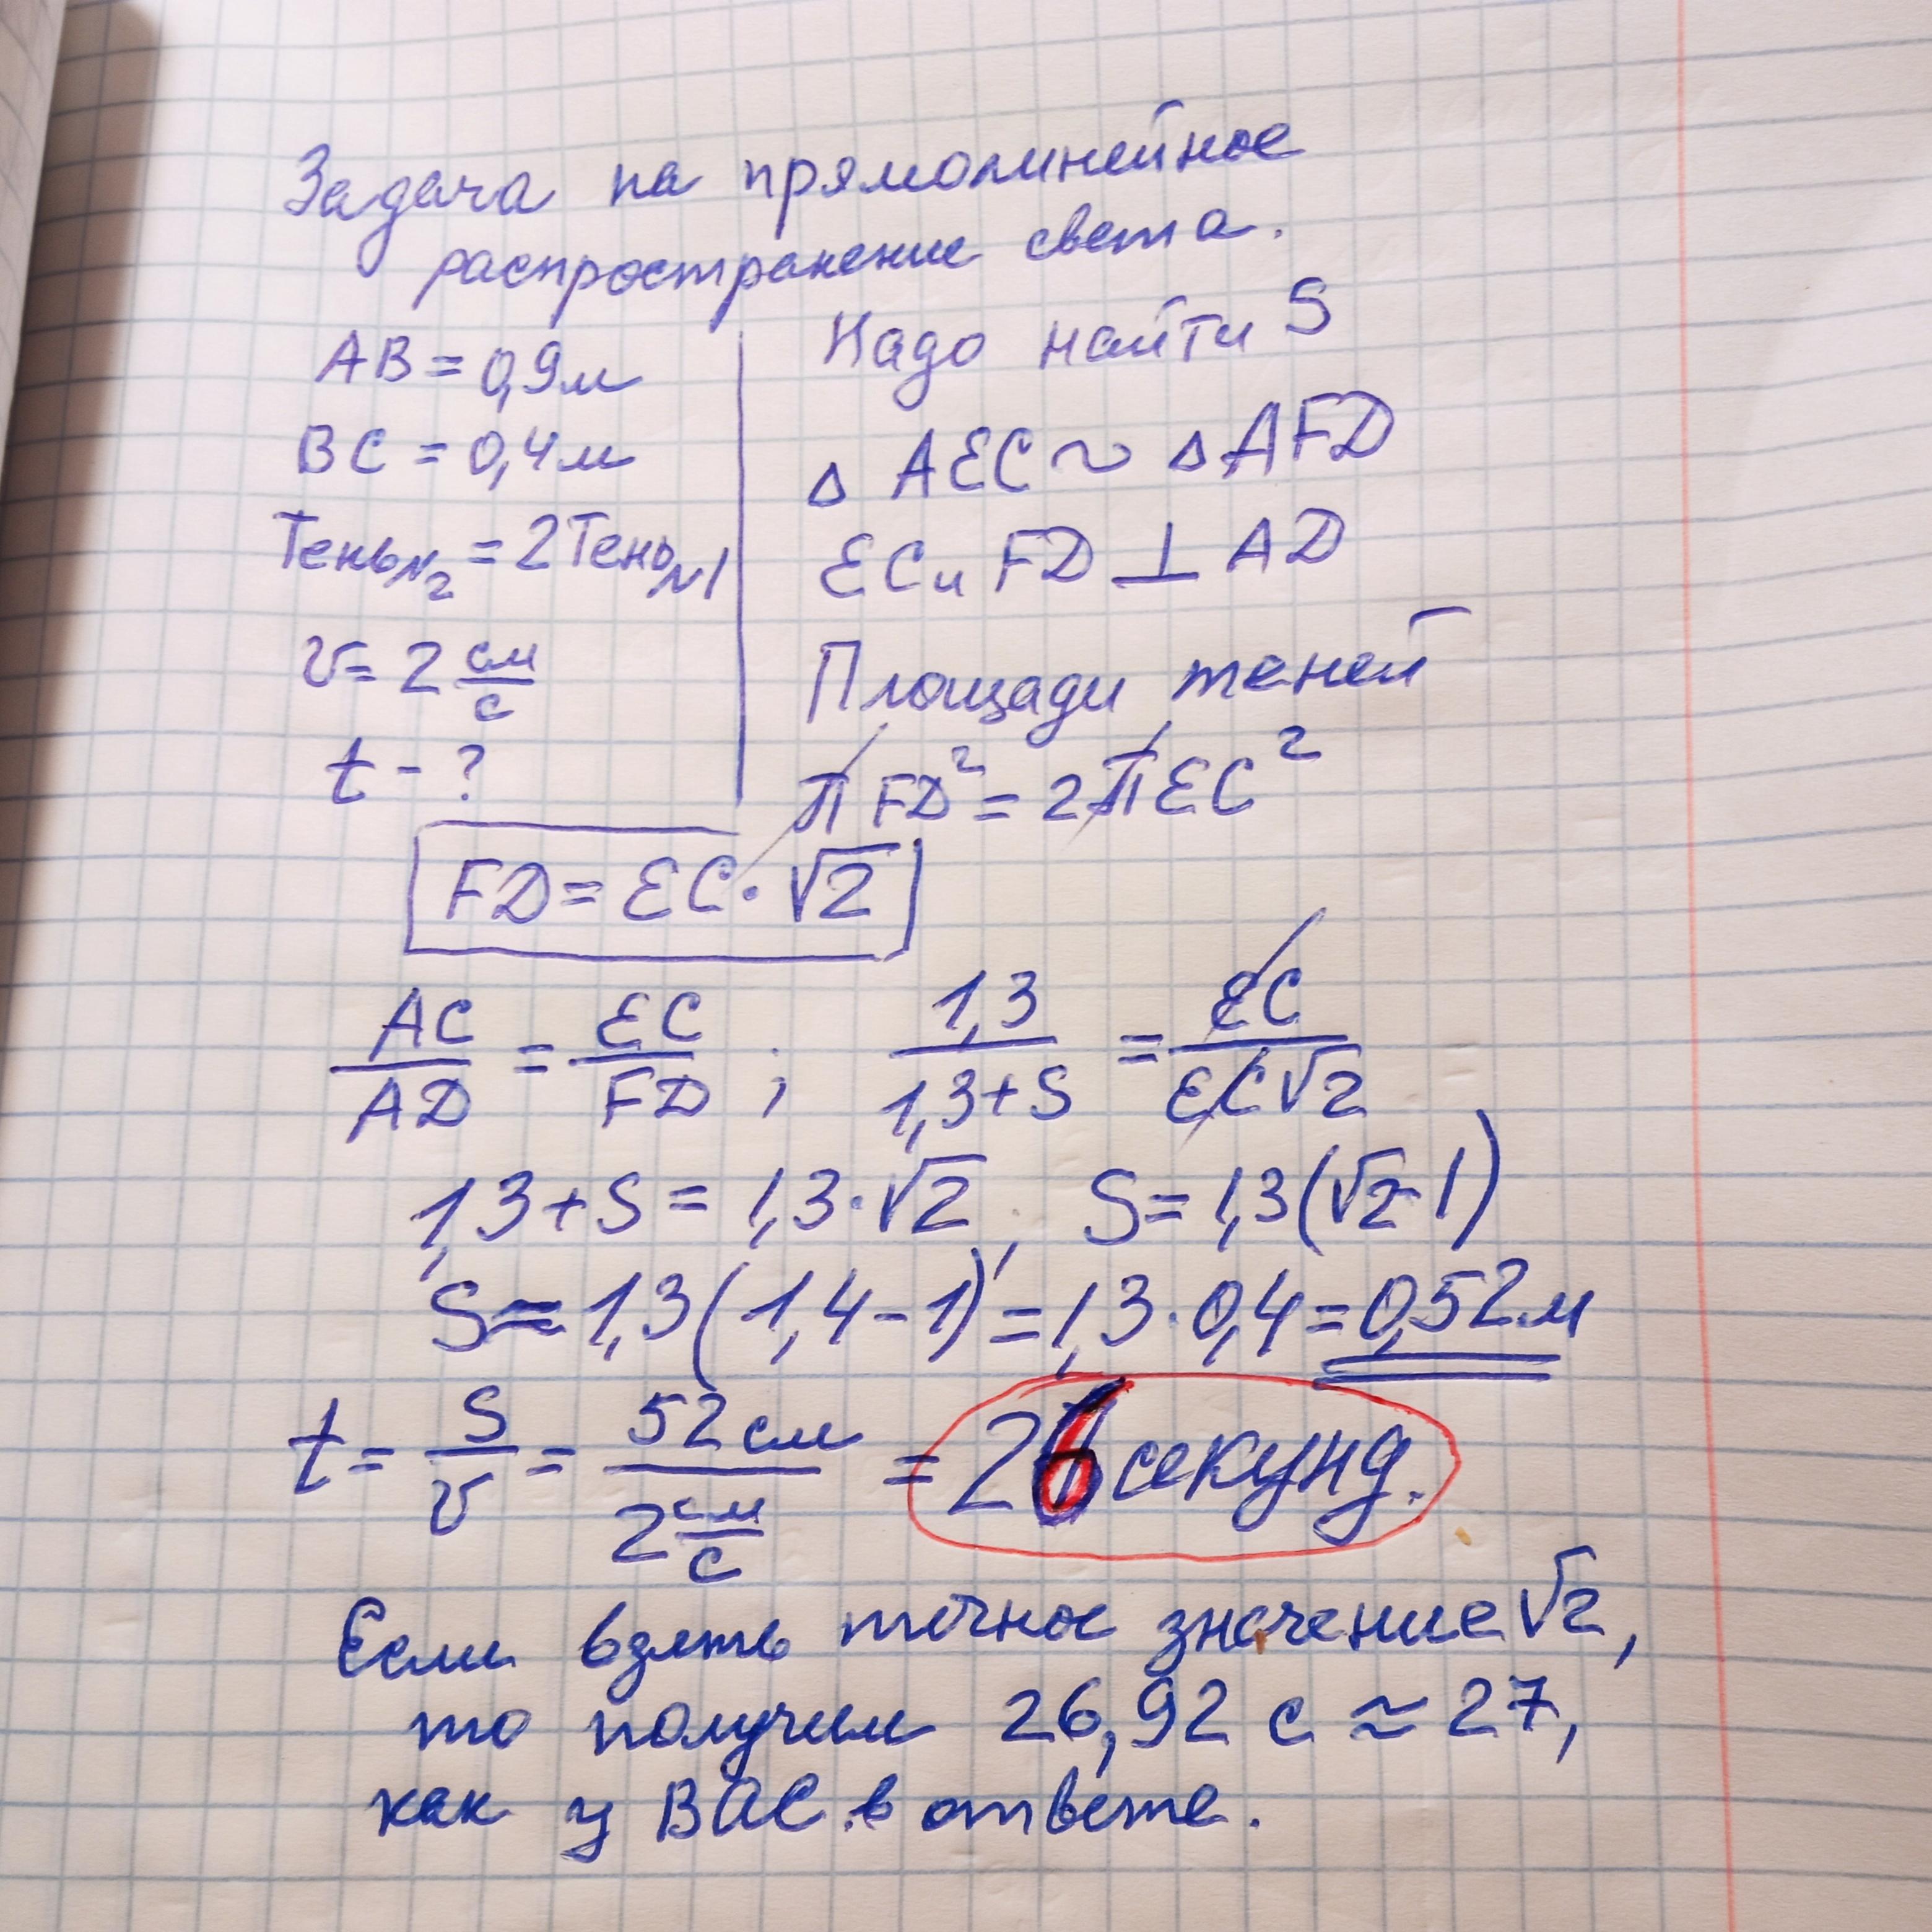 Задача на прямолинейное
распространение света.
AB = 0,9м
BC = 0,4м
Тень№2 = 2Тень№1
v = 2 см/с
t - ?
Надо найти S
△ AEC ~ △ AFD
EC и FD ⊥ AD
Площади теней
πFD² = 2πEC²
FD = EC · √2
AC/AD = EC/FD ; 1,3/(1,3+S) = EC/(EC√2)
1,3+S = 1,3·√2, S = 1,3(√2-1)
S ≈ 1,3(1,4-1) = 1,3·0,4 = 0,52м
t = S/v = 52 см/2 см/с = 26 секунд.
Если взять точное значение √2,
то получим 26,92 с ≈ 27,
как у ВАС в ответе.